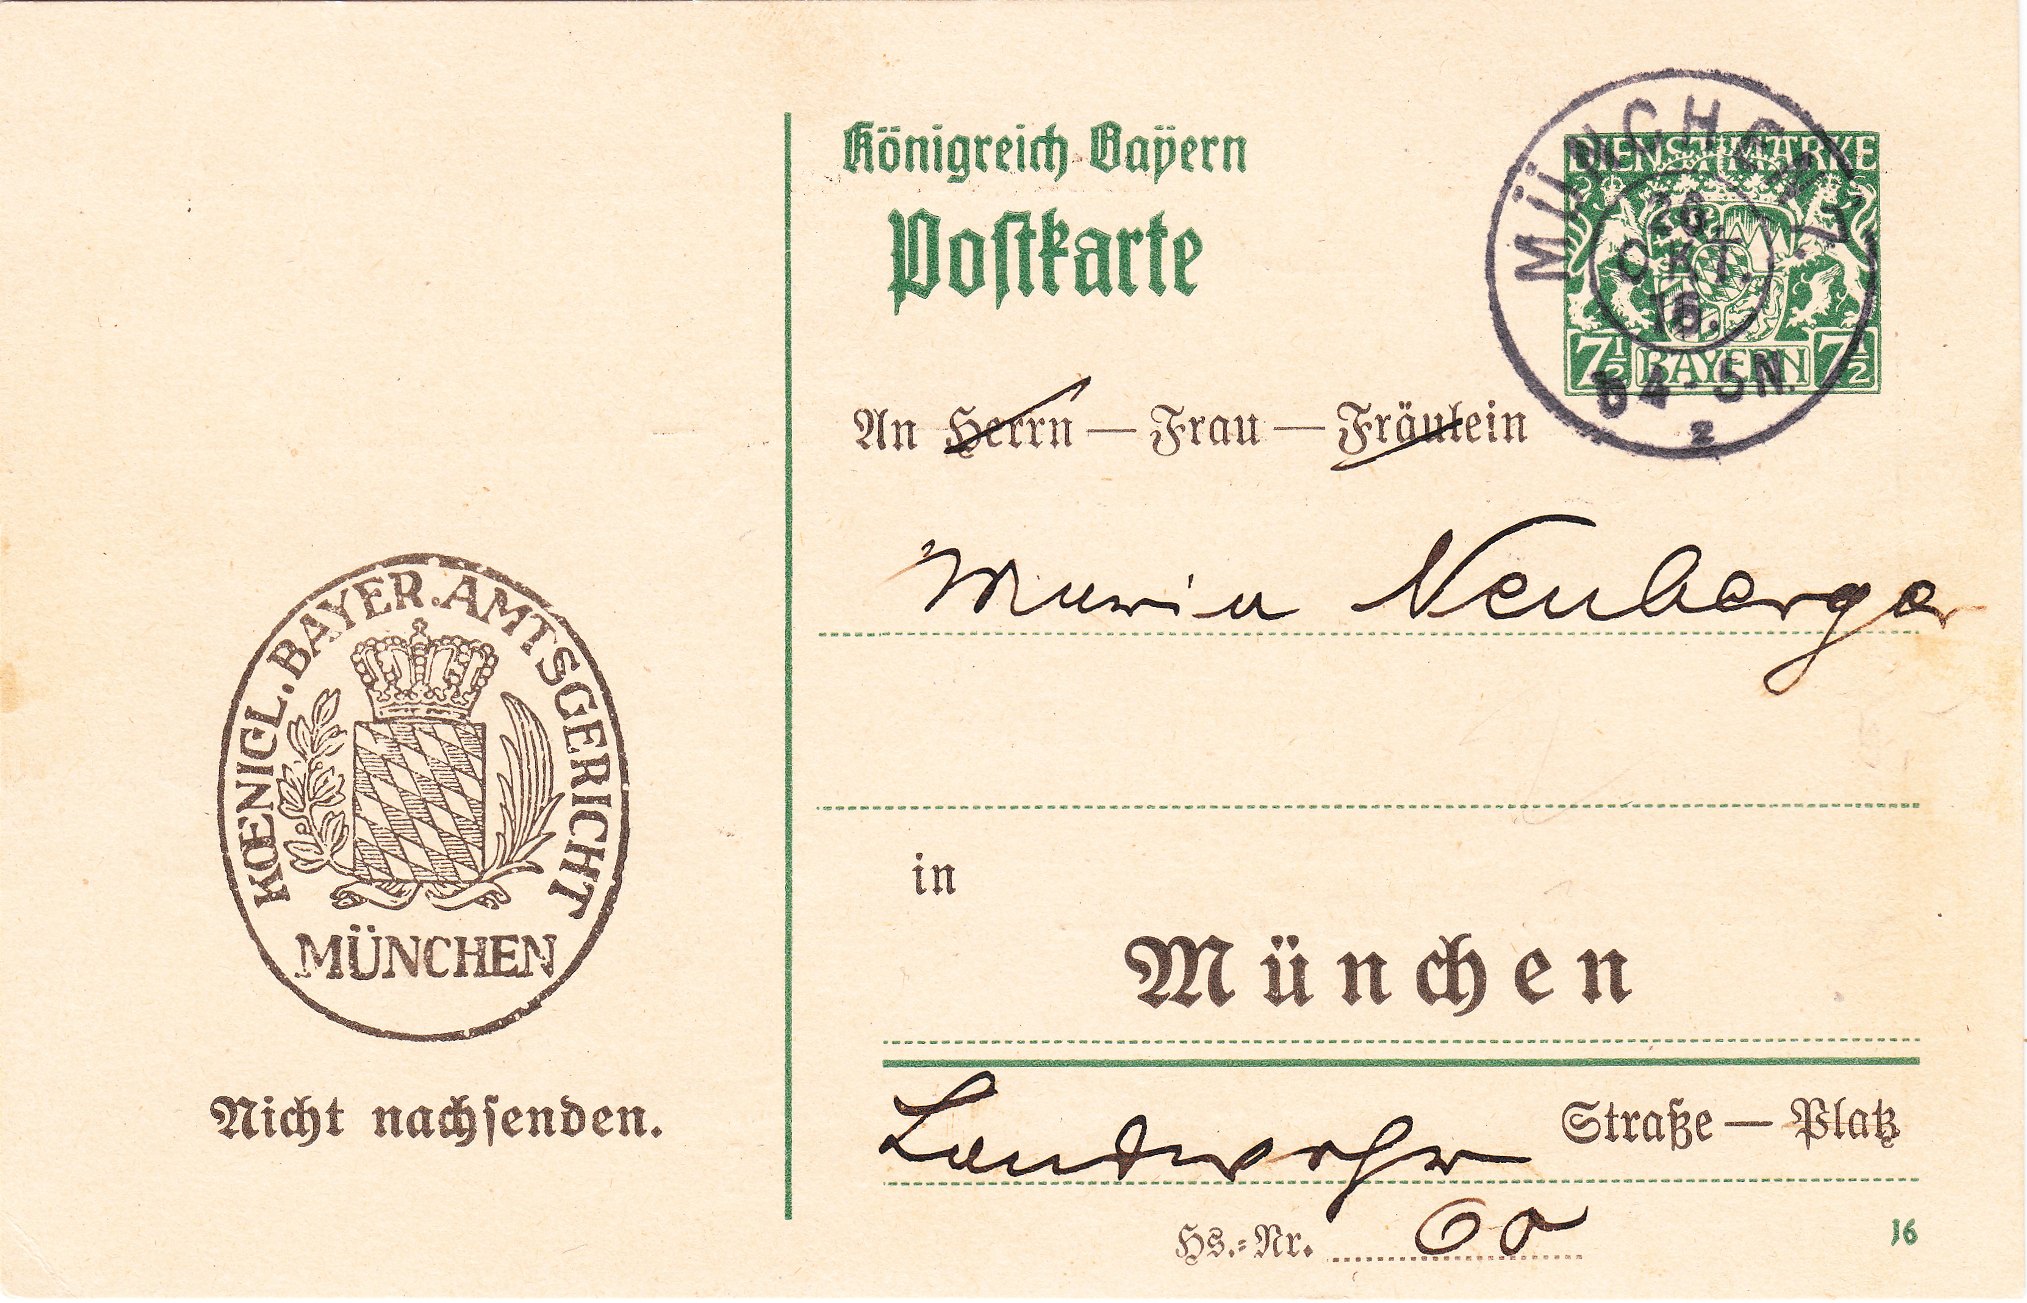 Königreich Bayern
Postkarte
DIENSTMARKE
7½ BAYERN 7½
MÜNCHEN 7.
OKT.
16.
4-5N.
An Herrn — Frau — Fräulein
Maria Neuberger
KŒNIGL. BAYER. AMTSGERICHT
MÜNCHEN
Nicht nachsenden.
in
München
Landwehr Straße — Platz
Hs.-Nr. 60
16